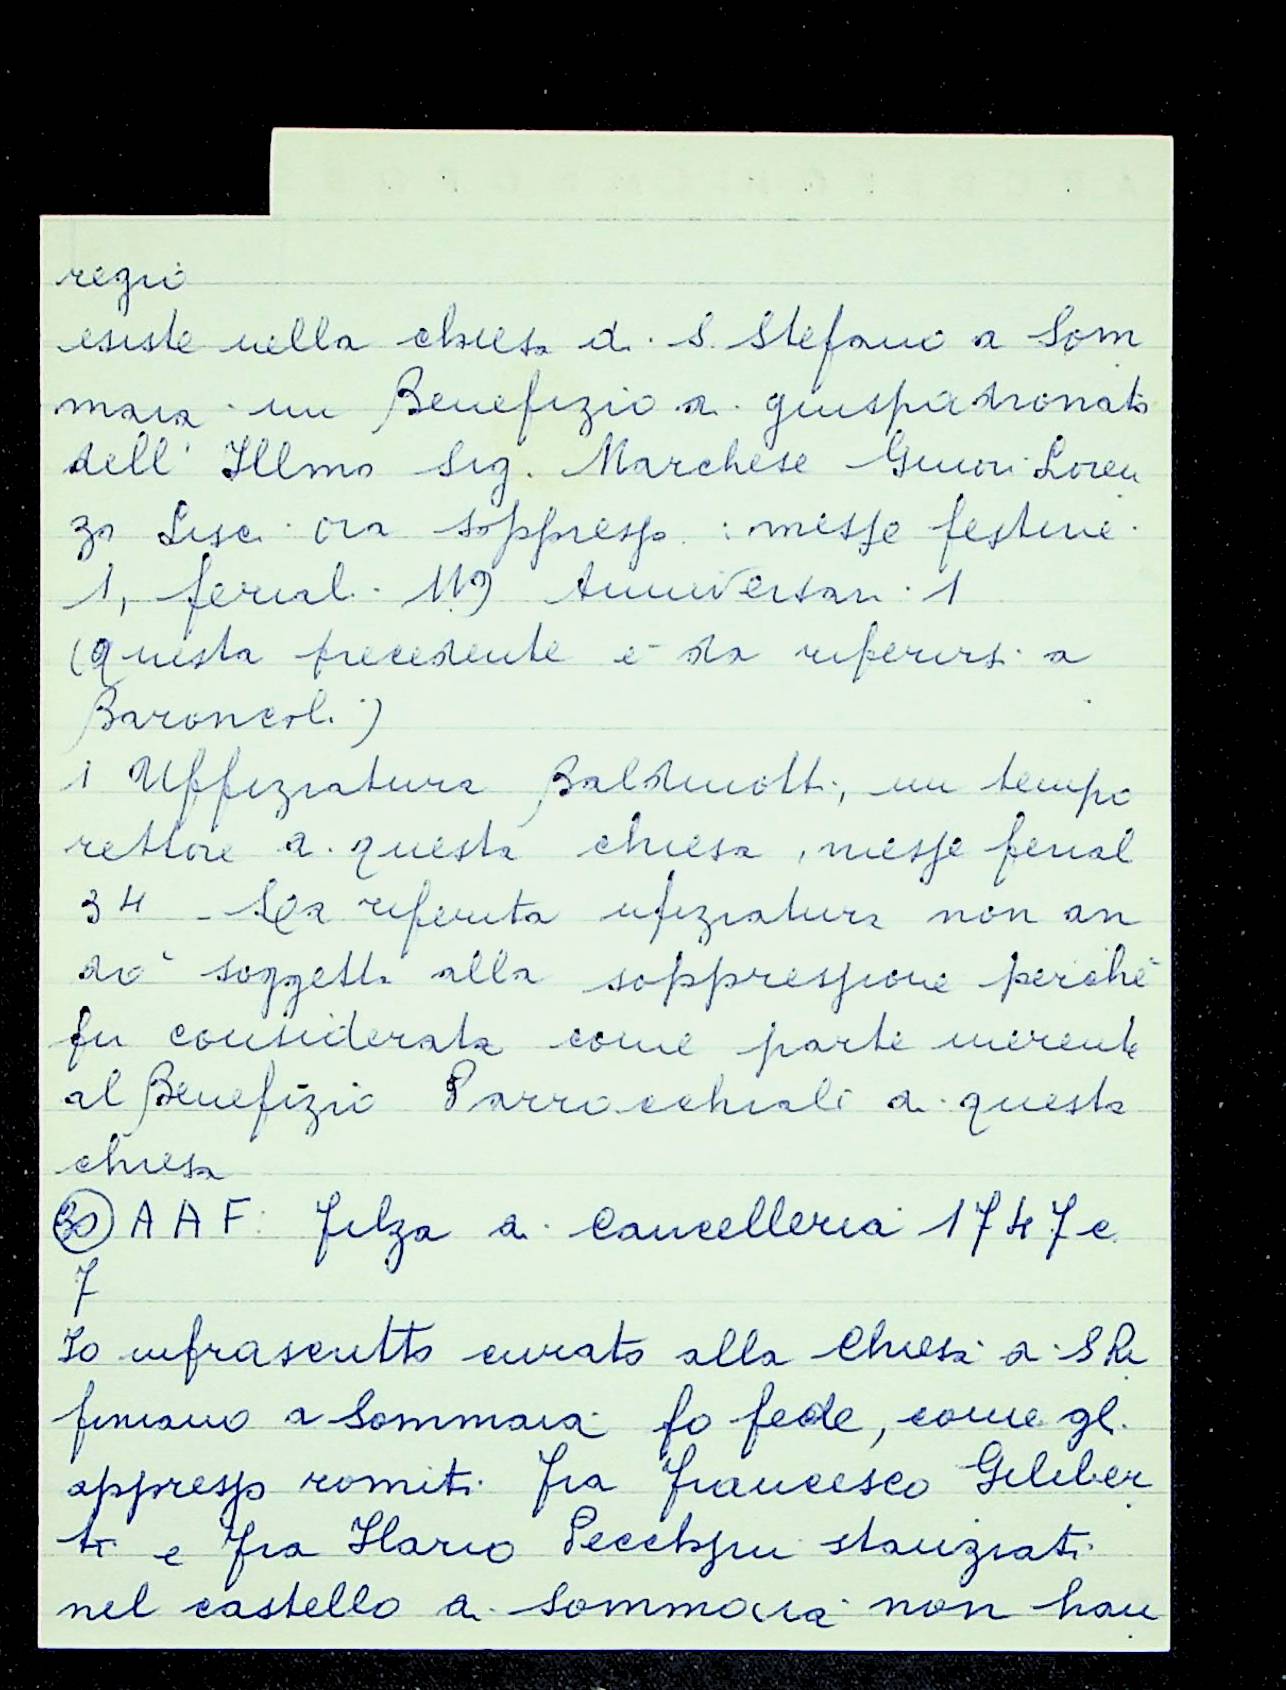 regio
esiste nella chiesa di S. Stefano a Som
maia un Benefizio di giuspadronato
dell' Illmo Sig. Marchese Ginori Loren
zo Lisci ora soppresso : messe festive
1, feriali 119 Anniversari 1
(questa precedente è da riferirsi a
Baroncoli)
1 Uffiziatura Baldinotti, un tempo
rettore di questa chiesa, messe ferial
34 - La riferita ufiziatura non an
dò soggetta alla soppressione perchè
fu considerata come parte inerente
al Benefizio Parrocchiali di questa
chiesa
30 A A F: Filza di Cancelleria 1747 c.
7
Io infrascritto curato alla Chiesa di S Ru
finiano a Sommaia fo fede, come gl.
appresso romiti fra Francesco Giliber
ti e fra Ilario stanziati
nel castello di Sommaia non han